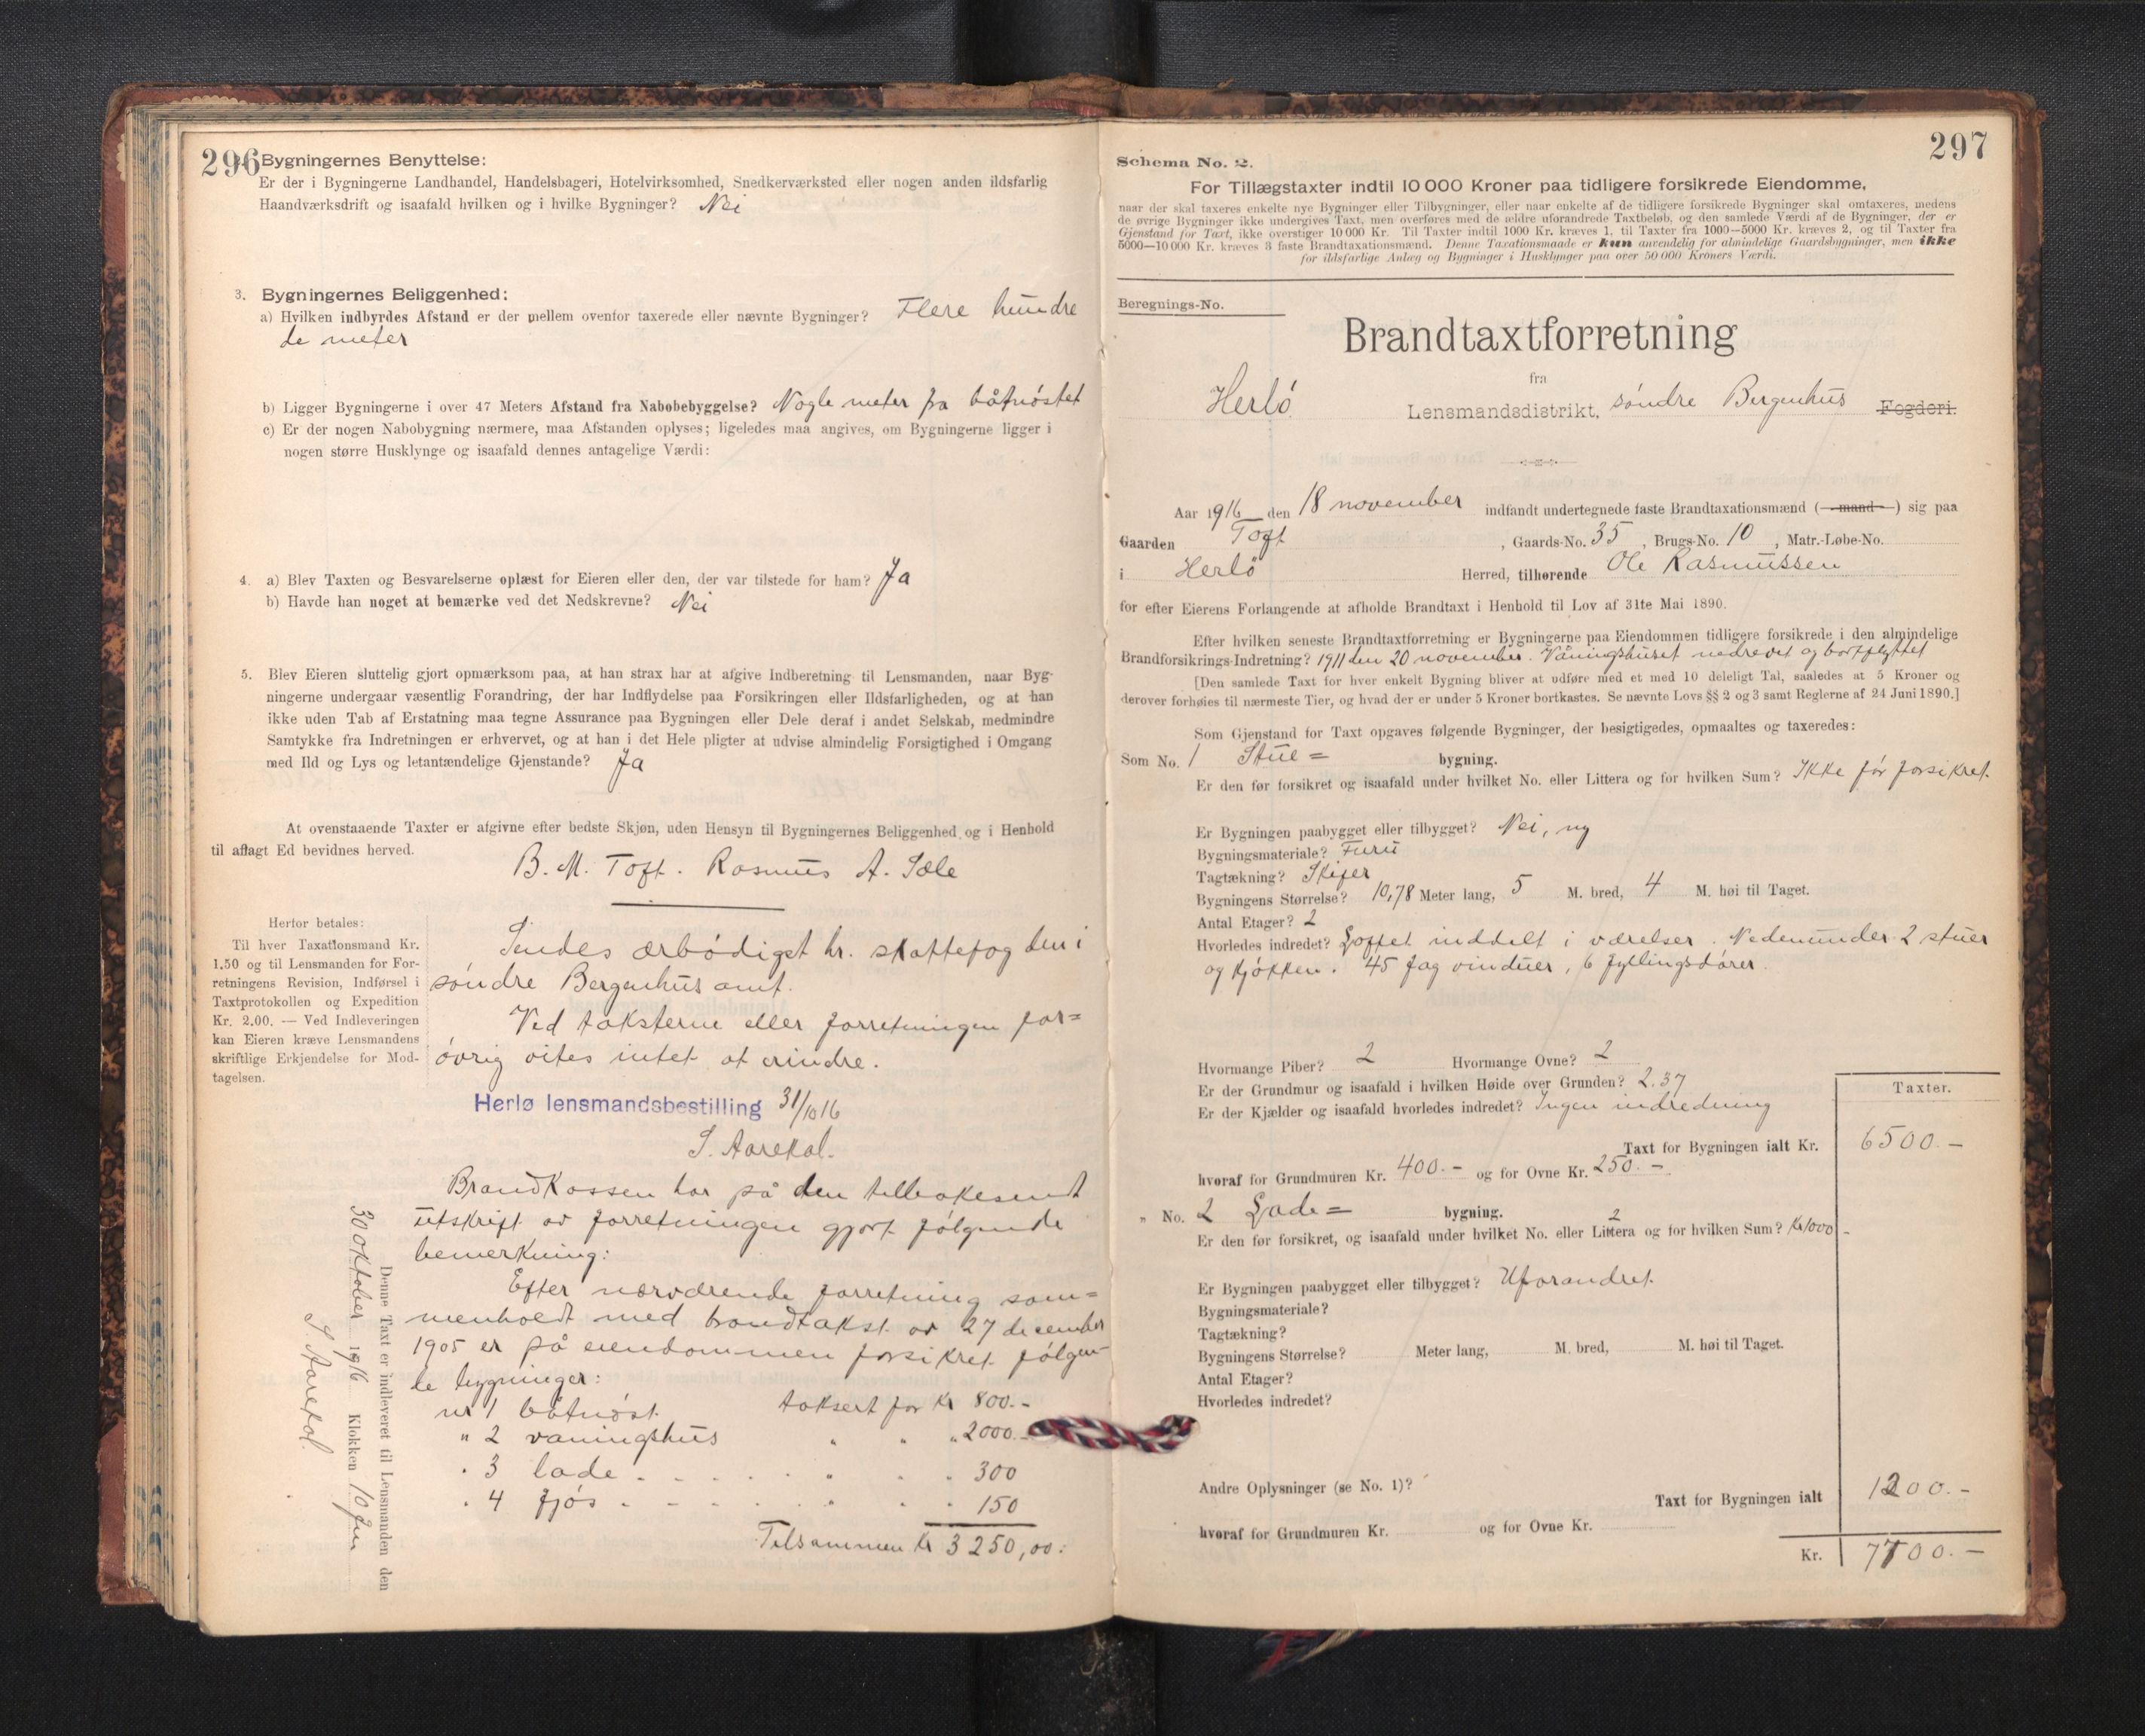 296
Bygningernes Benyttelse:
Er der i Bygningerne Landhandel, Handelsbageri, Hotelvirksomhed, Snedkerværksted eller nogen anden ildsfarlig
Haandværksdrift og isaafald hvilken og i hvilke Bygninger? Nei
3. Bygningernes Beliggenhed:
a) Hvilken indbyrdes Afstand er der mellem ovenfor taxerede eller nævnte Bygninger? Flere hundre
de meter
b) Ligger Bygningerne i over 47 Meters Afstand fra Nabobebyggelse? Nogle meter fra båtnöstet
c) Er der nogen Nabobygning nærmere, maa Afstanden oplyses; ligeledes maa angives, om Bygningerne ligger i
nogen større Husklynge og isaafald dennes antagelige Værdi:
4. a) Blev Taxten og Besvarelserne oplæst for Eieren eller den, der var tilstede for ham? Ja
b) Havde han noget at bemærke ved det Nedskrevne? Nei
5. Blev Eieren sluttelig gjort opmærksom paa, at han strax har at afgive Indberetning til Lensmanden, naar Byg-
ningerne undergaar væsentlig Forandring, der har Indflydelse paa Forsikringen eller Ildsfarligheden, og at han
ikke uden Tab af Erstatning maa tegne Assurance paa Bygningen eller Dele deraf i andet Selskab, medmindre
Samtykke fra Indretningen er erhvervet, og at han i det Hele pligter at udvise almindelig Forsigtighed i Omgang
med Ild og Lys og letantændelige Gjenstande? Ja
At ovenstaaende Taxter er afgivne efter bedste Skjøn, uden Hensyn til Bygningernes Beliggenhed og i Henhold
til aflagt Ed bevidnes herved.
B. M. Toft. Rasmus A. Sæle
Herfor betales:
Til hver Taxationsmand Kr.
1.50 og til Lensmanden for For-
retningens Revision, Indførsel i
Taxtprotokollen og Expedition
Kr. 2.00. — Ved Indleveringen
kan Eieren kræve Lensmandens
skriftlige Erkjendelse for Mod-
tagelsen.
Sendes ærbödigst hr. skattefogden i
söndre Bergenhus amt.
Ved taksterne eller forretningen for=
övrig vites intet at erindre.
Herlø lensmandsbestilling 31/10 16
S. Aarekol.
Brandkassen har på den tilbakesendt
utskrift av forretningen gjort fölgende
bemerkning:
Efter nærværende forretning sam=
menholdt med brandtakst av 27 december
1905 er på eiendommen forsikret fölgen-
de bygninger:
nr 1 båtnöst taksert for kr 800.-
" 2 våningshus " " " 2000.-
" 3 lade " " " 300
" 4 fjös " " " 150
Tilsammen kr 3250,00.
Denne Taxt er indleveret til Lensmanden den
30 oktober 1916 Klokken 10 fm
S. Aarekol.
297
Schema No. 2.
For Tillægstaxter indtil 10 000 Kroner paa tidligere forsikrede Eiendomme,
naar der skal taxeres enkelte nye Bygninger eller Tilbygninger, eller naar enkelte af de tidligere forsikrede Bygninger skal omtaxeres, medens
de øvrige Bygninger ikke undergives Taxt, men overføres med de ældre uforandrede Taxtbeløb, og den samlede Værdi af de Bygninger, der er
Gjenstand for Taxt, ikke overstiger 10 000 Kr. Til Taxter indtil 1000 Kr. kræves 1, til Taxter fra 1000—5000 Kr. kræves 2, og til Taxter fra
5000—10 000 Kr. kræves 3 faste Brandtaxationsmænd. Denne Taxationsmaade er kun anvendelig for almindelige Gaardsbygninger, men ikke
for ildsfarlige Anlæg og Bygninger i Husklynger paa over 50 000 Kroners Værdi.
Beregnings-No.
Brandtaxtforretning
fra
Herlö Lensmandsdistrikt, söndre Bergenhus Fogderi.
Aar 1916 den 18 november indfandt undertegnede faste Brandtaxationsmænd (mand) sig paa
Gaarden Toft, Gaards-No. 35, Brugs-No. 10, Matr.-Løbe-No.
i Herlö Herred, tilhørende Ole Rasmussen
for efter Eierens Forlangende at afholde Brandtaxt i Henhold til Lov af 31te Mai 1890.
Efter hvilken seneste Brandtaxtforretning er Bygningerne paa Eiendommen tidligere forsikrede i den almindelige
Brandforsikrings-Indretning? 1911 den 20 november. Våningshuset nedrevet og bortflyttet
[Den samlede Taxt for hver enkelt Bygning bliver at udføre med et med 10 deleligt Tal, saaledes at 5 Kroner og
derover forhøies til nærmeste Tier, og hvad der er under 5 Kroner bortkastes. Se nævnte Lovs §§ 2 og 3 samt Reglerne af 24 Juni 1890.]
Som Gjenstand for Taxt opgaves følgende Bygninger, der besigtigedes, opmaaltes og taxeredes:
Som No. 1 Stue= bygning.
Er den før forsikret og isaafald under hvilket No. eller Littera og for hvilken Sum? Ikke för forsikret.
Er Bygningen paabygget eller tilbygget? Nei, ny
Bygningsmateriale? Furu
Tagtækning? Skifer
Bygningens Størrelse? 10,78 Meter lang, 5 M. bred, 4 M. høi til Taget.
Antal Etager? 2
Hvorledes indredet? Loftet inddelt i værelser. Nedenunder 2 stuer
og kjökken. 45 fag vinduer, 6 fyllingsdörer.
Hvormange Piber? 2 Hvormange Ovne? 2
Er der Grundmur og isaafald i hvilken Høide over Grunden? 2.37
Er der Kjælder og isaafald hvorledes indredet? Ingen indredning
Taxter.
Taxt for Bygningen ialt Kr. 6500.-
hvoraf for Grundmuren Kr. 400.- og for Ovne Kr. 250.-
" No. 2 Lade= bygning.
Er den før forsikret, og isaafald under hvilket No. eller Littera og for hvilken Sum? 2 Kr 1000.-
Er Bygningen paabygget eller tilbygget? Uforandret
Bygningsmateriale?
Tagtækning?
Bygningens Størrelse? Meter lang, M. bred, M. høi til Taget.
Antal Etager?
Hvorledes indredet?
Andre Oplysninger (se No. 1)?
Taxt for Bygningen ialt 1200.-
hvoraf for Grundmuren Kr. og for Ovne Kr.
Kr. 7700.-